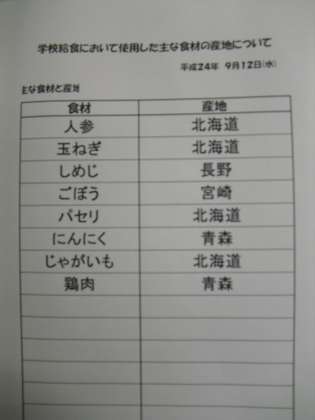 学校給食において使用した主な食材の産地について
平成24年 9月12日(水)
主な食材と産地
食材 産地
人参 北海道
玉ねぎ 北海道
しめじ 長野
ごぼう 宮崎
パセリ 北海道
にんにく 青森
じゃがいも 北海道
鶏肉 青森